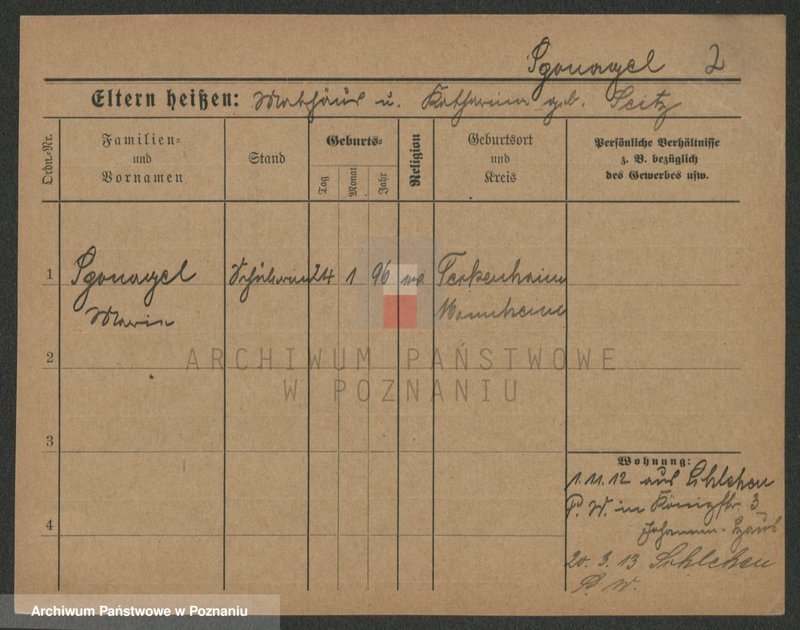 Sgonagel 2
Eltern heißen: Mathäus u. Katharina geb. Seitz
Ordn.-Nr.
Familien-
und
Vornamen
Stand
Geburts-
Tag
Monat
Jahr
Religion
Geburtsort
und
Kreis
Persönliche Verhältnisse
z. B. bezüglich
des Gewerbes usw.
1 Sgonagel 24 1 96
Marie Mannheim
2
ARCHIWUM PAŃSTWOWE
W POZNANIU
3
4
Wohnung:
1.11.12 aus
P. W. in Königstr. 3
20. 3. 13
P. W.
Archiwum Państwowe w Poznaniu